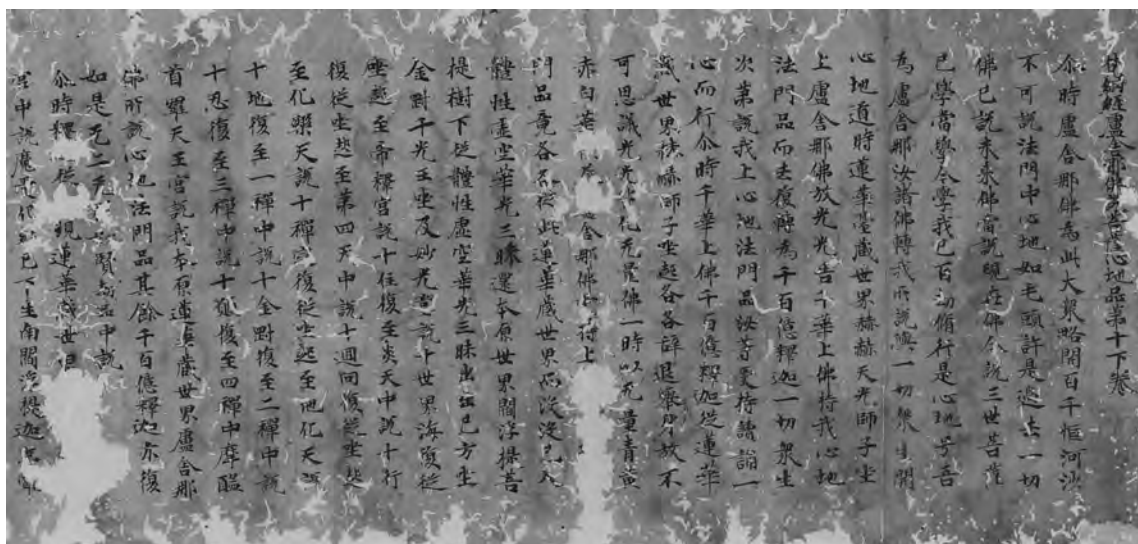 梵網經盧舍那佛說菩薩心地品第十下卷
尒時盧舍那佛為此大衆略開百千恒河沙
不可說法門中心地如毛頭許是過去一切
佛已說未來佛當說現在佛今說三世菩薩
已學當學今學我已百劫脩行是心地号吾
為盧舍那汝諸佛轉我所說與一切衆生開
心地道時蓮華臺藏世界赫赫天光師子坐
上盧舍那佛放光光告千華上佛持我心地
法門品而去復轉為千百億釋迦一切衆生
次第說我上心地法門品汝等受持讀誦一
心而行尒時千華上佛千百億釋迦從蓮華
藏世界赫赫師子坐起各各辭退舉身放不
可思議光光皆化无量佛一時以无量青黃
赤白華 舍那佛 持上
門品竟各各從此蓮華藏世界而沒沒已入
體性虛空華光三昧還本原世界閻浮提菩
提樹下從體性虛空華光三昧出出已方坐
金剛千光王座及妙光堂說十世界海復從
座起至帝釋宮說十住復至炎天中說十行
復從坐起至第四天中說十迴向復從坐起
至化樂天說十禪定復從坐起至他化天說
十地復至一禪中說十金剛復至二禪中說
十忍復至三禪中說十願復至四禪中摩醯
首羅天王宮說我本原蓮華藏世界盧舍那
佛所說心地法門品其餘千百億釋迦亦復
如是无二无 賢劫品中說
尒時釋迦從 現蓮華藏世界
宮中說魔 化 已下生南閻浮提迦